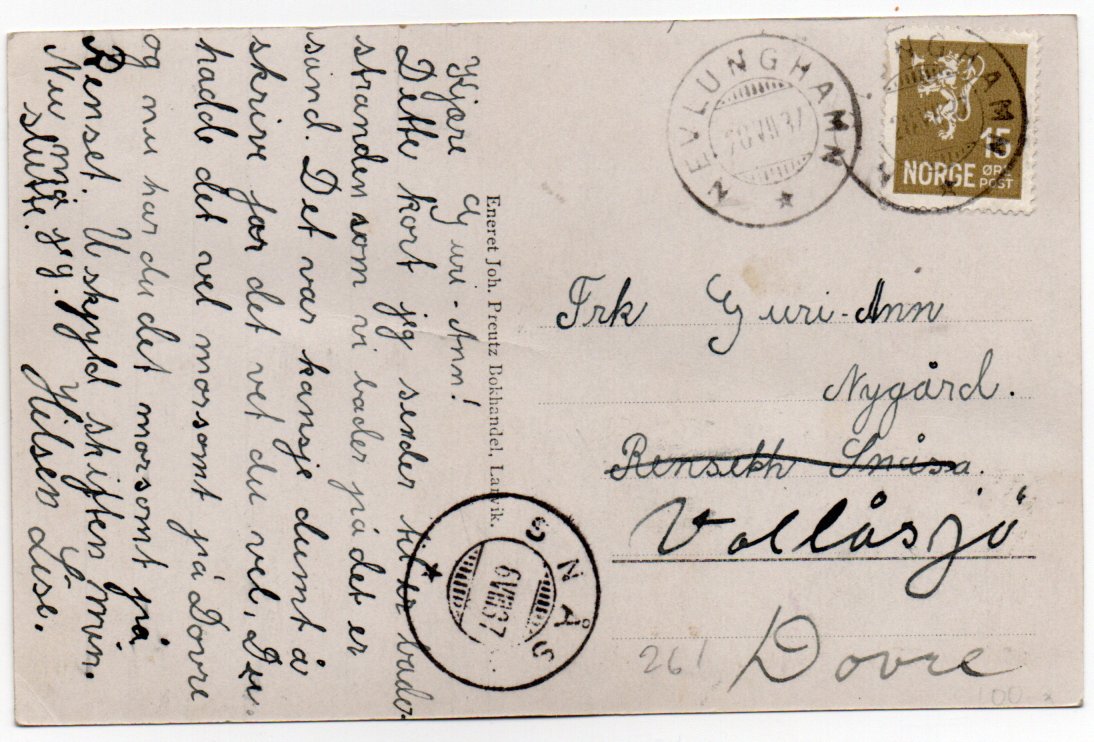 Kjære Guri-Ann!
Dette kort jeg sender til er bade-
stranden som vi bader på det er
sund. Det var kansje dumt å
skrive før det vet du vel, Du
hadde det vel morsomt på Dovre
og nu har du det morsomt på
Renset. Uskyld skiften min.
Nu må jeg Hilsen Lise.
slutte.
Eneret Joh. Preutz Bokhandel, Larvik.
NEVLUNGHAMN
20 VII 37
NORGE 15 ØRE
POST
Frk Guri-Ann
Nygård.
Rensekh Snåsa.
"Vollåsjö"
Dovre
SNÅS
6 VIII 37
261
100 x